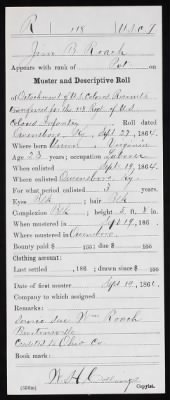 R 118 U.S.C.T
Jim B Roach
Appears with rank of Pvt on
Muster and Descriptive Roll
of Detachment of U.S. Colored Recruits
transferred for the 118 Regt. of U.S.
Colored Infantry Roll dated
Owensboro Ky, Sept 22, 1864.
Where born Union, Virginia
Age 23 years; occupation Laborer
When enlisted Sept. 19, 1864.
Where enlisted Owensboro Ky.
For what period enlisted 3 years.
Eyes Blk; hair Blk
Complexion Blk; height 5 ft. 8 in.
When mustered in Sept 19, 1864.
Where mustered in Owensboro
Bounty paid $ 100; due $ 100
Clothing account:
Last settled , 186 ; drawn since $ 100
Date of first muster Sept 19, 1864.
Company to which assigned
Remarks:
Service due Wm Roach
Credited to Ohio Co.
Book mark:
W. H.
Copyist.